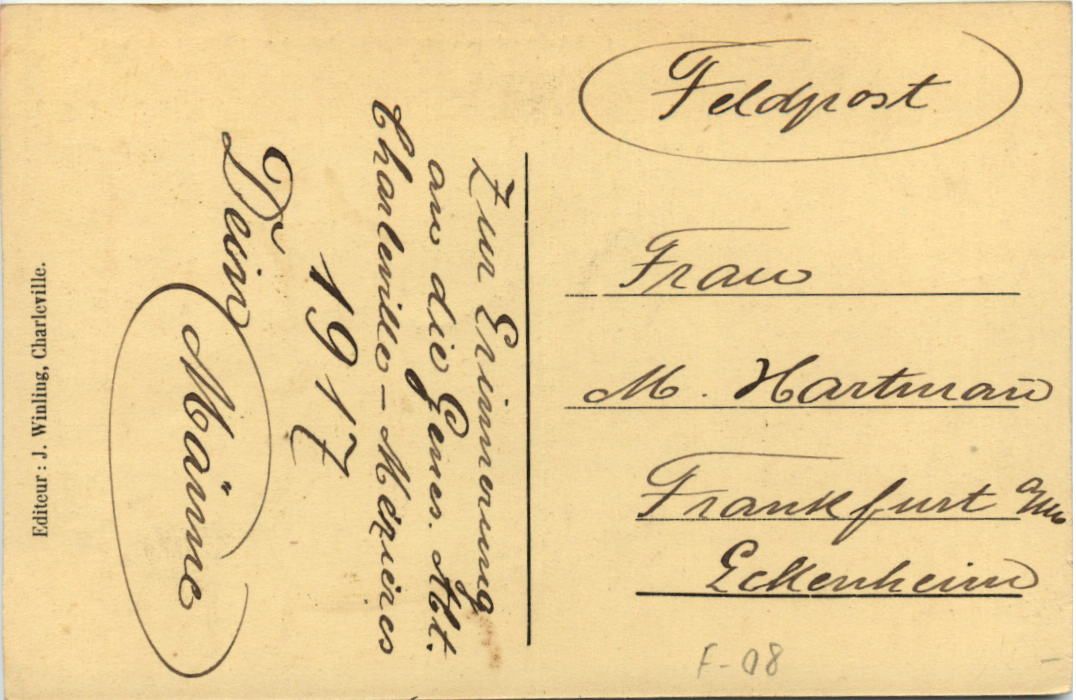 Feldpost
Frau
M. Hartmañ
Frankfurt a/M
Eckenheim
Zur Erinnerung
an die Genes. Abt.
Charleville-Mézières
1917
Dein
Männe
Editeur : J. Winling, Charleville.
F-08